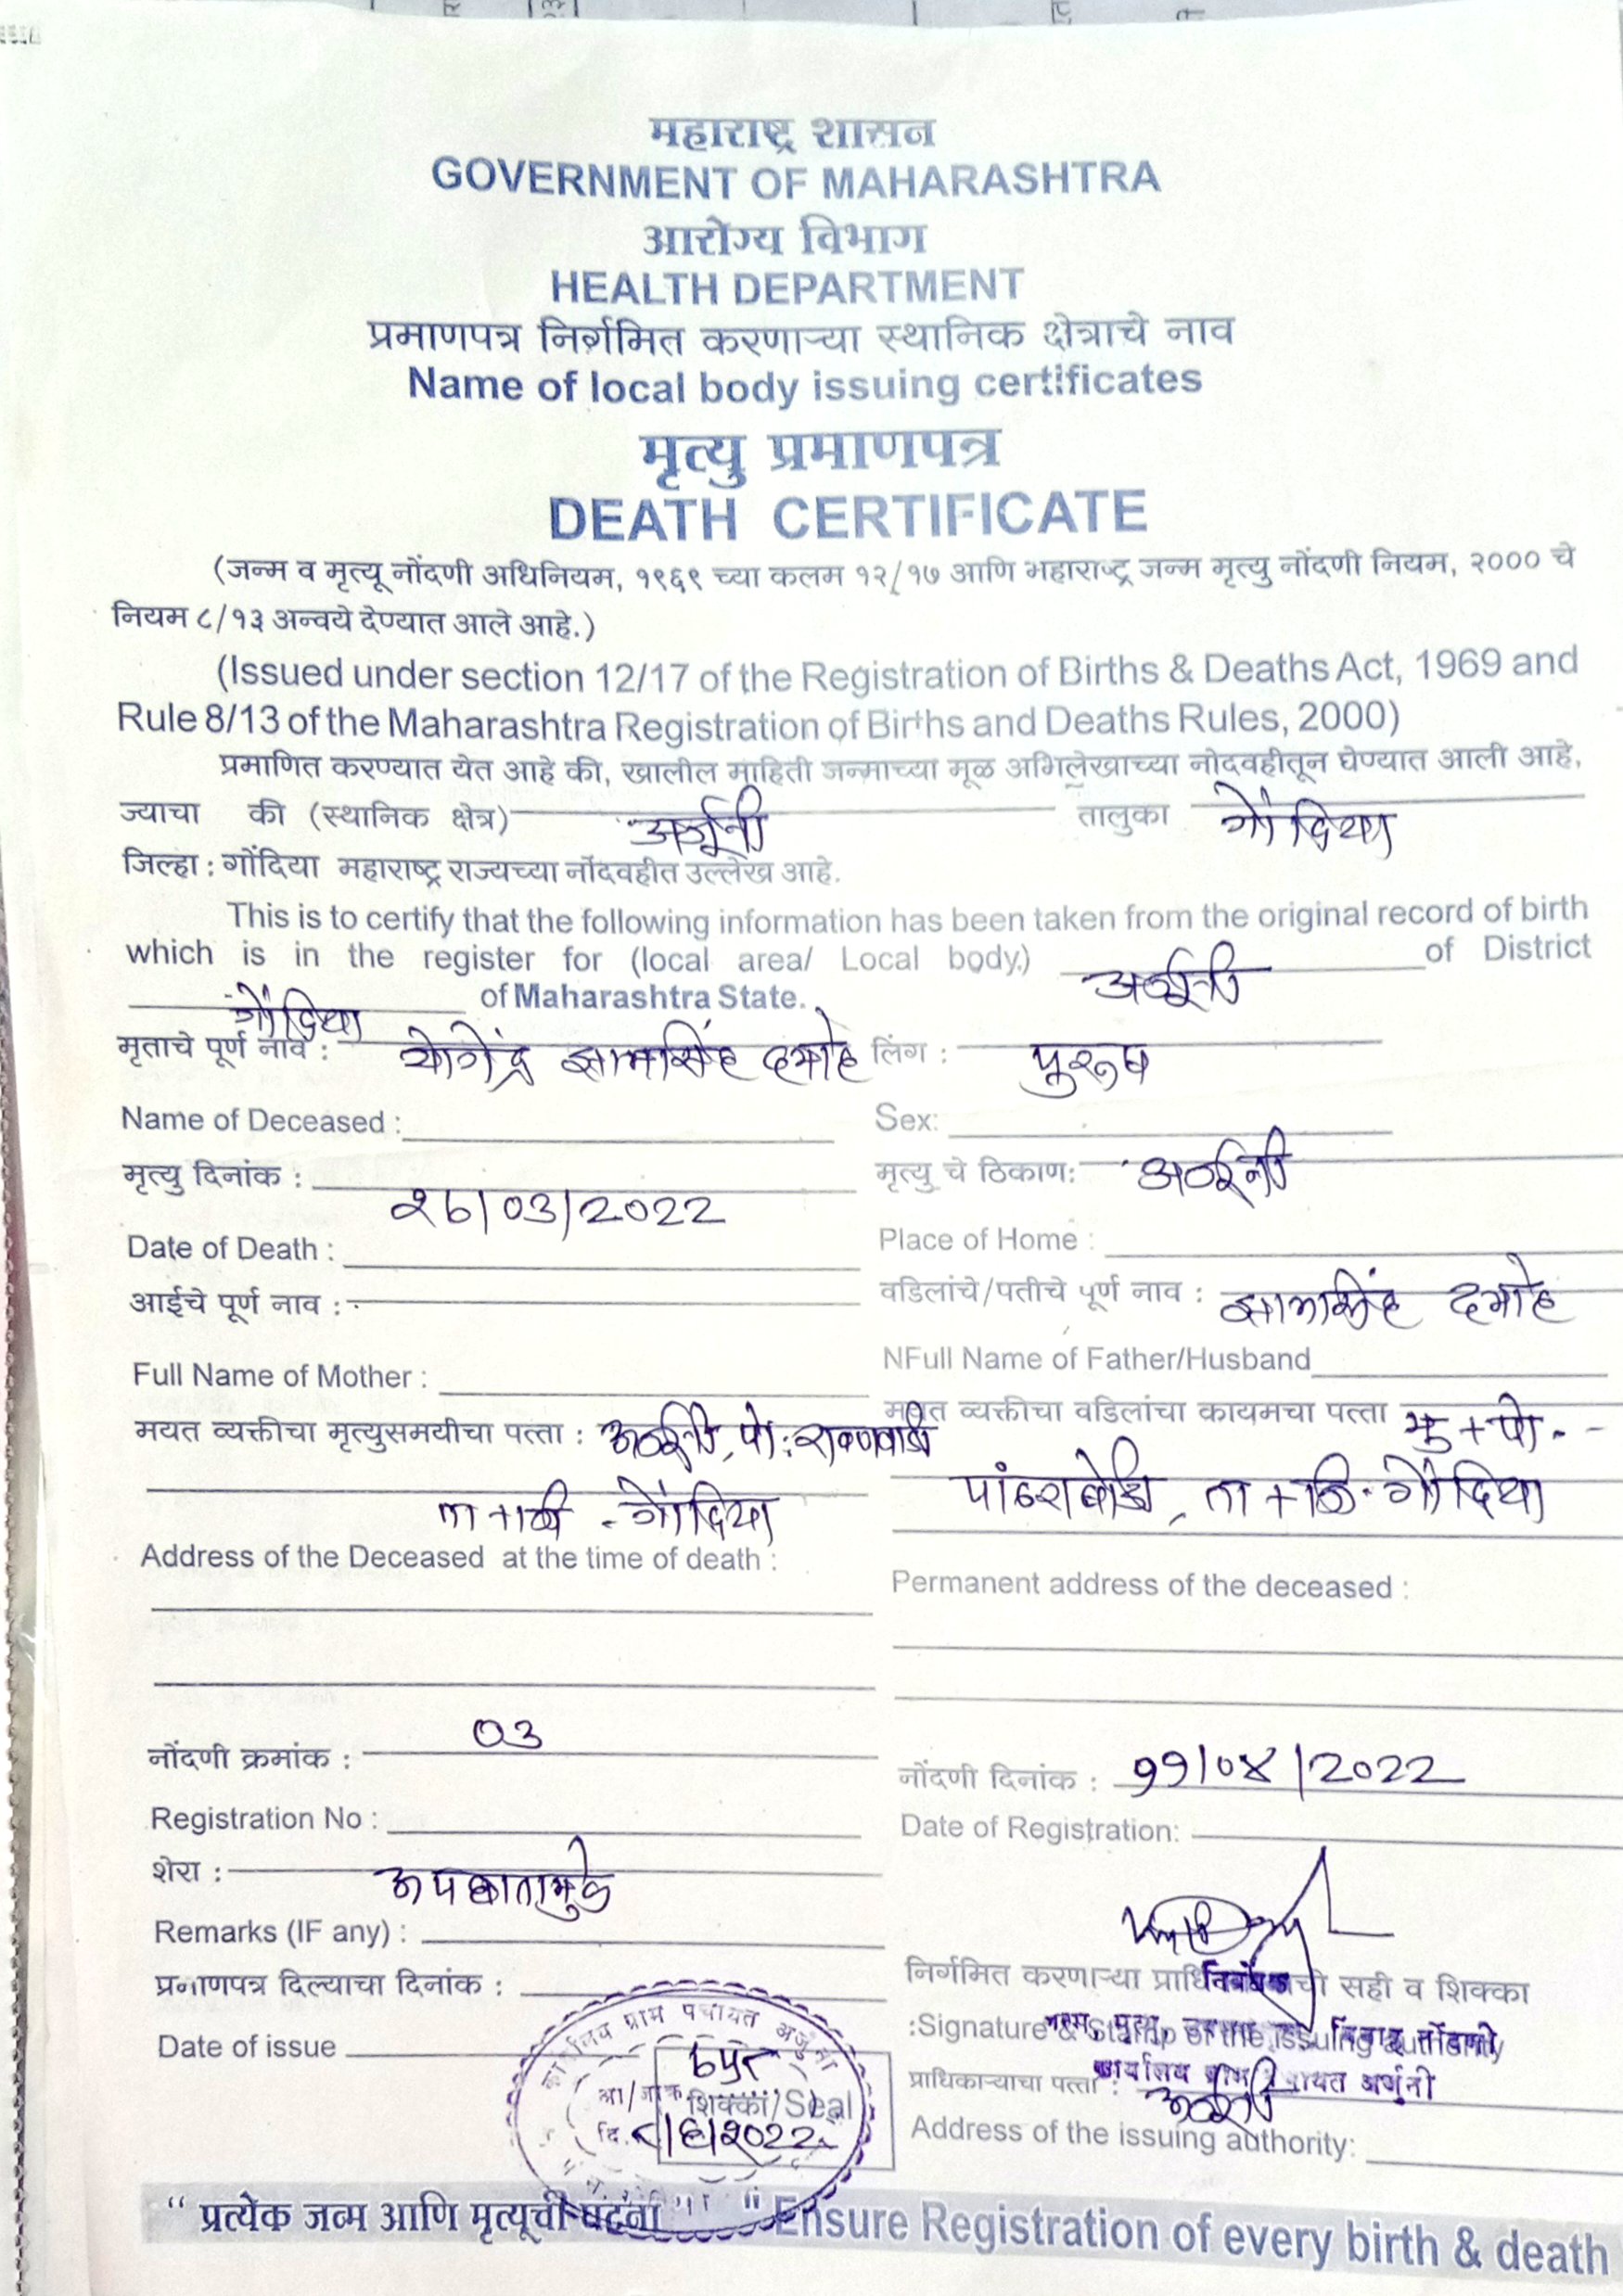 महाराष्ट्र शासन
GOVERNMENT OF MAHARASHTRA
आरोग्य विभाग
HEALTH DEPARTMENT
प्रमाणपत्र निर्गमित करणाऱ्या स्थानिक क्षेत्राचे नाव
Name of local body issuing certificates
मृत्यु प्रमाणपत्र
DEATH CERTIFICATE
(जन्म व मृत्यू नोंदणी अधिनियम, १९६९ च्या कलम १२/१७ आणि महाराष्ट्र जन्म मृत्यु नोंदणी नियम, २००० चे
नियम ८/१३ अन्वये देण्यात आले आहे.)
(Issued under section 12/17 of the Registration of Births & Deaths Act, 1969 and
Rule 8/13 of the Maharashtra Registration of Births and Deaths Rules, 2000)
प्रमाणित करण्यात येत आहे की, खालील माहिती जन्माच्या मूळ अभिलेखाच्या नोदवहीतून घेण्यात आली आहे,
ज्याचा की (स्थानिक क्षेत्र) अर्जुनी तालुका गोंदिया
जिल्हा : गोंदिया महाराष्ट्र राज्यच्या नोंदवहीत उल्लेख आहे.
This is to certify that the following information has been taken from the original record of birth
which is in the register for (local area/ Local body.) अर्जुनी of District
गोंदिया of Maharashtra State.
मृताचे पूर्ण नाव : योगेंद्र झामसिंह दमाहे लिंग : पुरूष
Name of Deceased : Sex:
मृत्यु दिनांक : २७/03/2022 मृत्यु चे ठिकाण: अर्जुनी
Date of Death : Place of Home :
आईचे पूर्ण नाव : वडिलांचे/पतीचे पूर्ण नाव : झामसिंह दमाहे
Full Name of Mother : NFull Name of Father/Husband
मयत व्यक्तीचा मृत्युसमयीचा पत्ता : अर्जुनी, पो: रावणवाडी मयत व्यक्तीचा वडिलांचा कायमचा पत्ता मु + पो -
ता + जि - गोंदिया पांढराबोडी, ता + जि - गोंदिया
Address of the Deceased at the time of death : Permanent address of the deceased :
नोंदणी क्रमांक : 03 नोंदणी दिनांक : ११/०४/2022
Registration No : Date of Registration:
शेरा : अपघातामुळे
Remarks (IF any) :
प्रमाणपत्र दिल्याचा दिनांक : निर्गमित करणाऱ्या सही व शिक्का
Date of issue :Signature & Stamp of the issuing authority
निबंधक
जन्म, मृत्यु, विवाह नोंदणी
कार्यालय ग्राम पंचायत अर्जुनी
कार्यालय ग्राम पंचायत अर्जुनी
आ/जाक्र
शिक्का/Seal
दि. ८/६/२०22
प्राधिकाऱ्याचा पत्ता : अर्जुनी
Address of the issuing authority:
“ प्रत्येक जन्म आणि मृत्यूची घटना " Ensure Registration of every birth & death